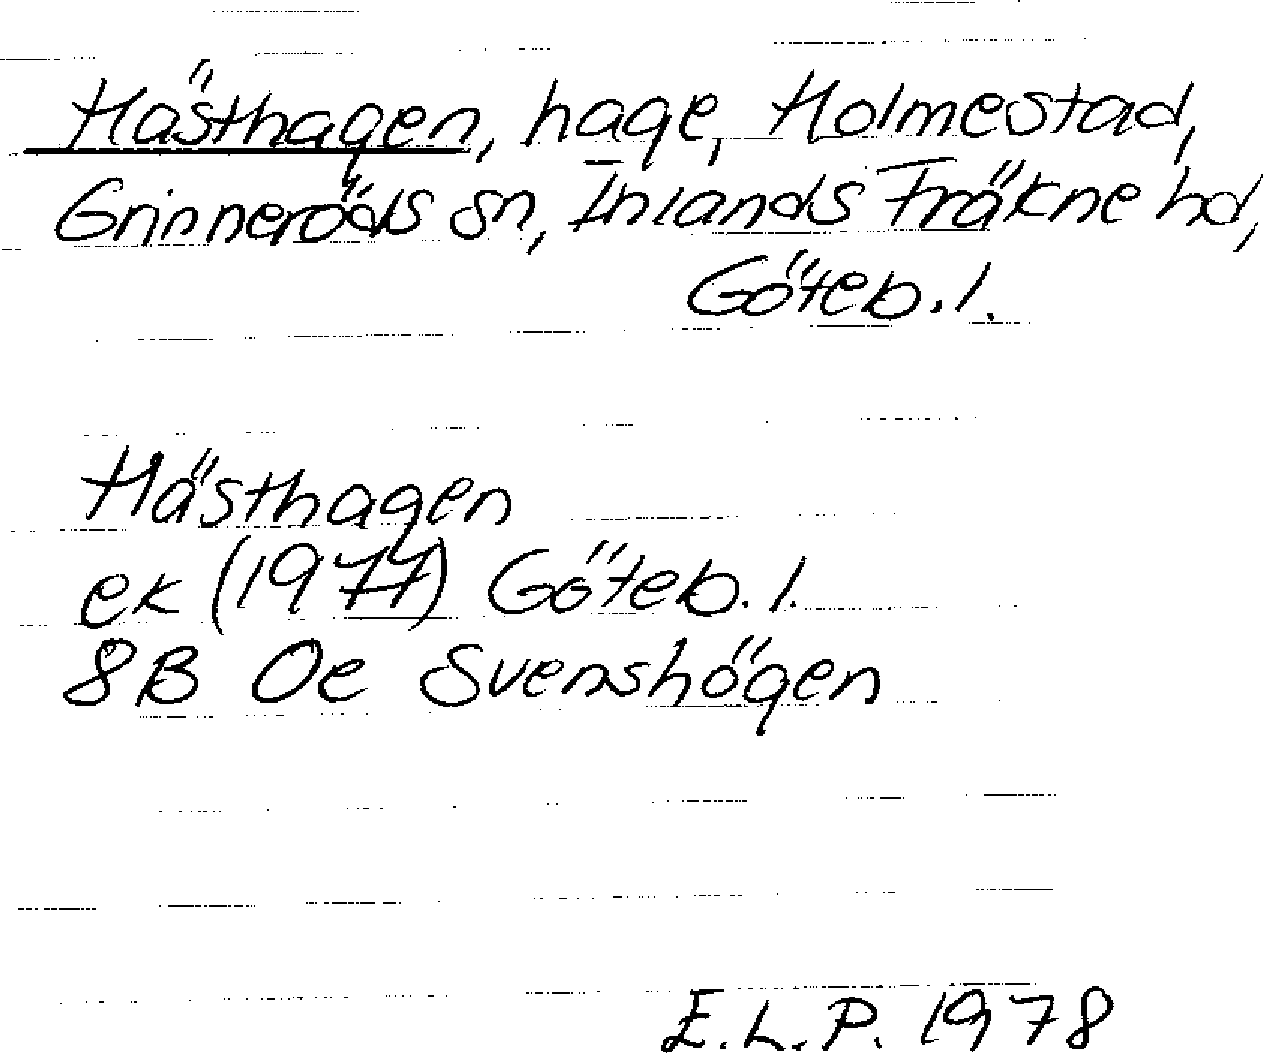 Hästhagen, hage, Holmestad,
Grinneröds sn, Inlands Fräkne hd,
Göteb. l.
Hästhagen
ek (1977) Göteb. l.
8B Oe Svenshögen
E.L.P. 1978